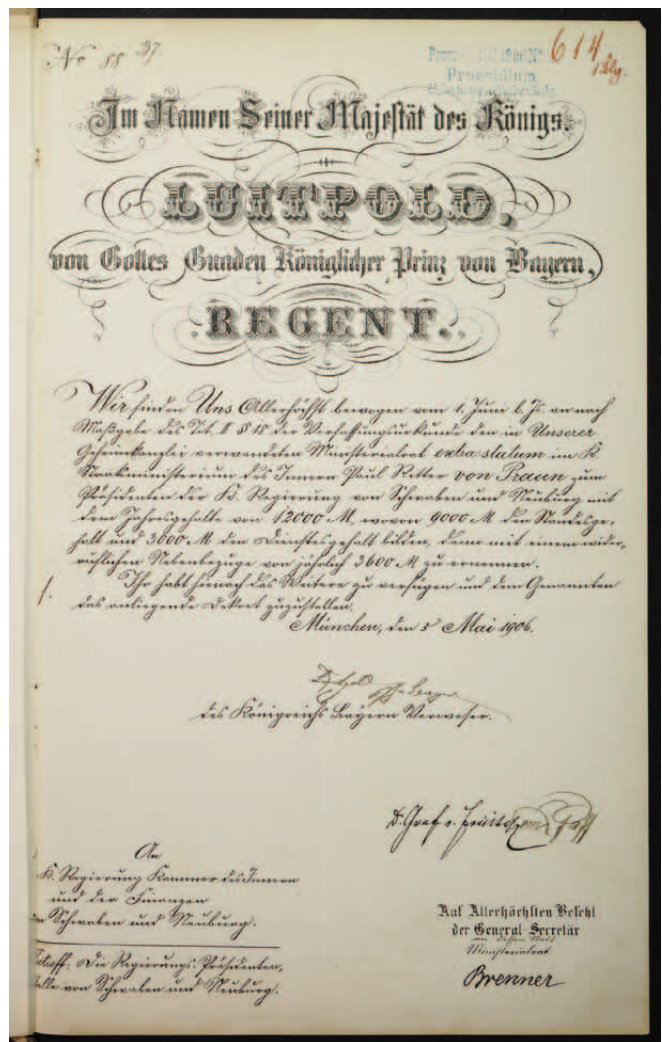 No 88
37.
614
Praesidium
Im Namen Seiner Majestät des Königs.
LUITPOLD,
von Gottes Gnaden Königlicher Prinz von Bayern,
REGENT.
Wir finden Uns Allerhöchst bewogen vom 1. Juni l. Js. an nach
Maßgabe des Tit. II § 18 der Verfassungsurkunde den in Unserer
Geheimkanzlei verwendeten Ministerialrat extra statum im K.
Staatsministerium des Innern Paul Ritter von Praun zum
Präsidenten der K. Regierung von Schwaben und Neuburg mit
dem Jahresgehalte von 12000 M, wovon 9000 M den Standesge-
halt und 3000 M den Dienstesgehalt bilden, dann mit einem wider-
ruflichen Nebenbezuge von jährlich 3600 M zu ernennen.
Ihr habt hienach das Weitere zu verfügen und dem Genannten
das anliegende Dekret zuzustellen.
München, den 5 Mai 1906.
des Königreichs Bayern Verweser.
D. Graf v. Feilitzsch
Pfaff
An
K. Regierung Kammer des Innern
und der Finanzen
von Schwaben und Neuburg.
Betreff: Die Regierungs-Präsidenten-
stelle von Schwaben und Neuburg.
Auf Allerhöchsten Befehl
der General-Secretär
an dessen Statt
Ministerialrat
Brenner